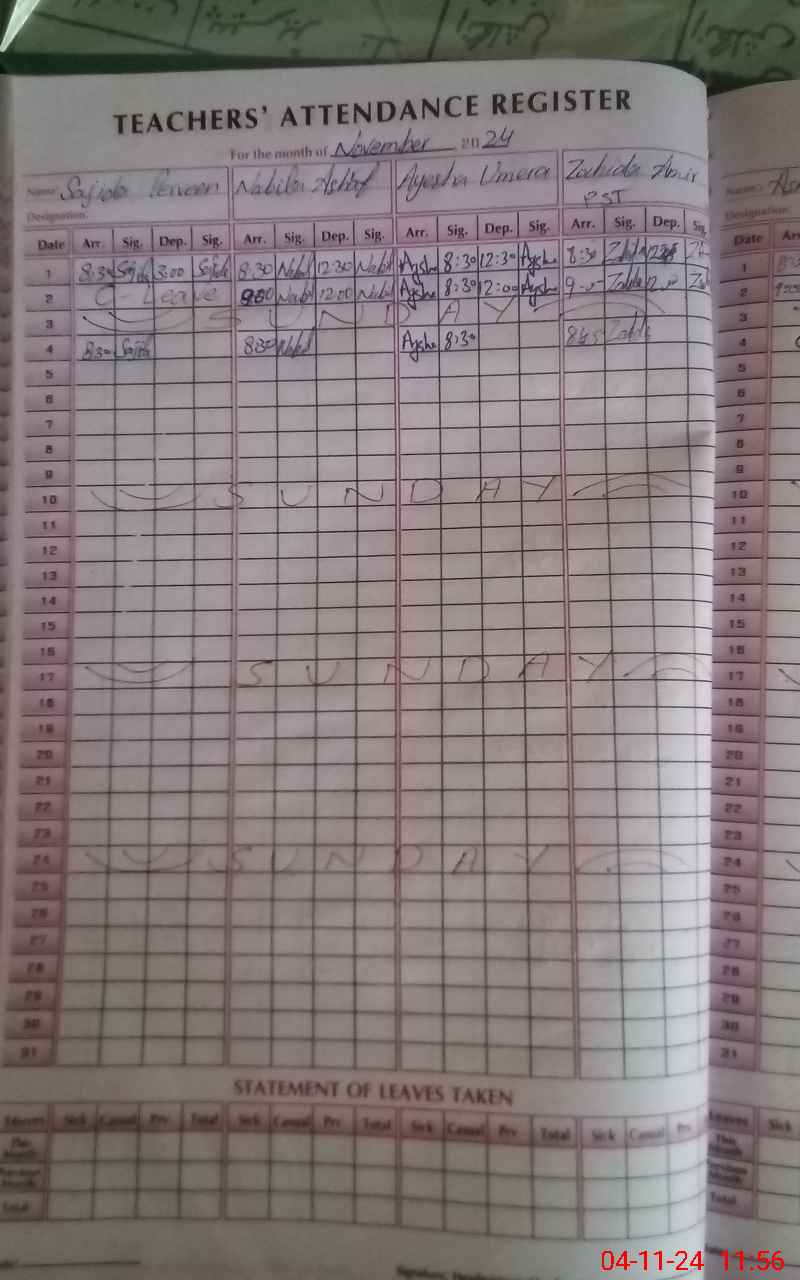 TEACHERS' ATTENDANCE REGISTER
For the month of November 2024
Name: Sajida Perveen Nabila Ashraf Ayesha Umera Zahida Amir Name:
Designation: PST Designation:
Date Arr. Sig. Dep. Sig. Arr. Sig. Dep. Sig. Arr. Sig. Dep. Sig. Arr. Sig. Dep. Sig. Date
1 8:30 Sajida 3:00 Sajida 8:30 Nabil 12:30 Nabil Aysha 8:30 12:30 Aysha 8:30 1
2 C-Leave 9:00 Nabil 12:00 Nabil Aysha 8:30 12:00 Aysha 2
3 SUNDAY 3
4 8:30 Sajida 8:30 Nabil Aysha 8:30 8:45 4
5 5
6 6
7 7
8 8
9 9
10 SUNDAY 10
11 11
12 12
13 13
14 14
15 15
16 16
17 SUNDAY 17
18 18
19 19
20 20
21 21
22 22
23 23
24 SUNDAY 24
25 25
26 26
27 27
28 28
29 29
30 30
31 31
STATEMENT OF LEAVES TAKEN
Leaves Sick Casual Prv Total Sick Casual Prv Total Sick Casual Prv Total Sick Casual Prv Leaves Sick
This Month This Month
Previous Month Previous Month
Total Total
04-11-24 11:56